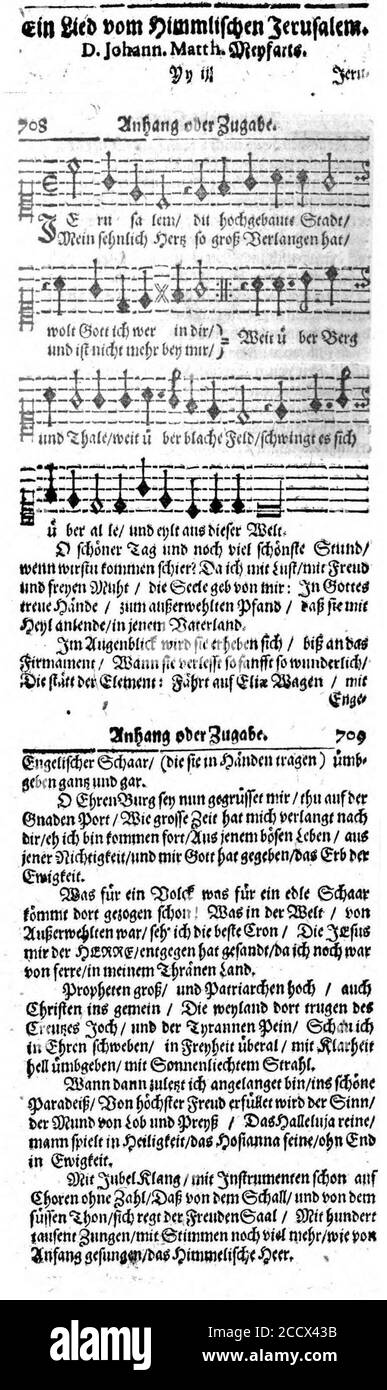 Ein Lied vom Himmlischen Jerusalem.
D. Johann. Matth. Meyfarts.
Yy iij Jeru-
708 Anhang oder Zugabe.
JE ru sa lem/ du hochgebaute Stadt/
Mein sehnlich Hertz so groß Verlangen hat/
wolt Gott ich wer in dir/
und ist nicht mehr bey mir/
Weit ů ber Berg
und Thale/weit ů ber blache Feld/schwingt es sich
ů ber al le/ und eylt aus dieser Welt.
O schöner Tag und noch viel schönste Stund/
wenn wirstu kommen schier? Da ich mit Lust/mit Freud
und freyen Muht / die Seele geb von mir: In Gottes
treue Hände / zum außerwehlten Pfand / daß sie mit
Heyl anlende/in jenem Vaterland.
Im Augenblick wird sie erheben sich / biß an das
Firmament / Wann sie verlesst so sanfft so wunderlich/
Die stätt der Element: Fährt auf Eliæ Wagen / mit
Enge-
Anhang oder Zugabe. 709
Engelischer Schaar/ (die sie in Händen tragen) ümb-
geben gantz und gar.
O Ehren Burg sey nun gegrüsset mir / thu auf der
Gnaden Port / Wie grosse Zeit hat mich verlangt nach
dir/eh ich bin kommen fort/Aus jenem bösen Leben / aus
jener Nichtigkeit/und mir Gott hat gegeben/das Erb der
Ewigkeit.
Was für ein Volck was für ein edle Schaar
kömmt dort gezogen schon! Was in der Welt / von
Außerwehlten war/ seh' ich die beste Cron / Die JEsus
mir der HERRE/entgegen hat gesandt/da ich noch war
von ferre/in meinem Thränen Land.
Propheten groß/ und Patriarchen hoch / auch
Christen ins gemein / Die weyland dort trugen des
Creutzes Joch/ und der Tyrannen Pein/ Schau ich
in Ehren schweben/ in Freyheit überal / mit Klarheit
hell ümbgeben/ mit Sonnenliechtem Strahl.
Wann dann zuletzt ich angelanget bin/ins schöne
Paradeiß/ Von höchster Freud erfüllet wird der Sinn/
der Mund von Lob und Preyß / Das Halleluja reine/
mann spielt in Heiligkeit/das Hosianna feine/ohn End
in Ewigkeit.
Mit Jubel Klang / mit Instrumenten schon auf
Choren ohne Zahl/Daß von dem Schall/ und von dem
süssen Thon/sich regt der Freuden Saal / Mit hundert
tausent Zungen/mit Stimmen noch viel mehr/wie von
Anfang gesungen/das Himmelische Heer.
alamy
Image ID: 2CCX43B
www.alamy.com